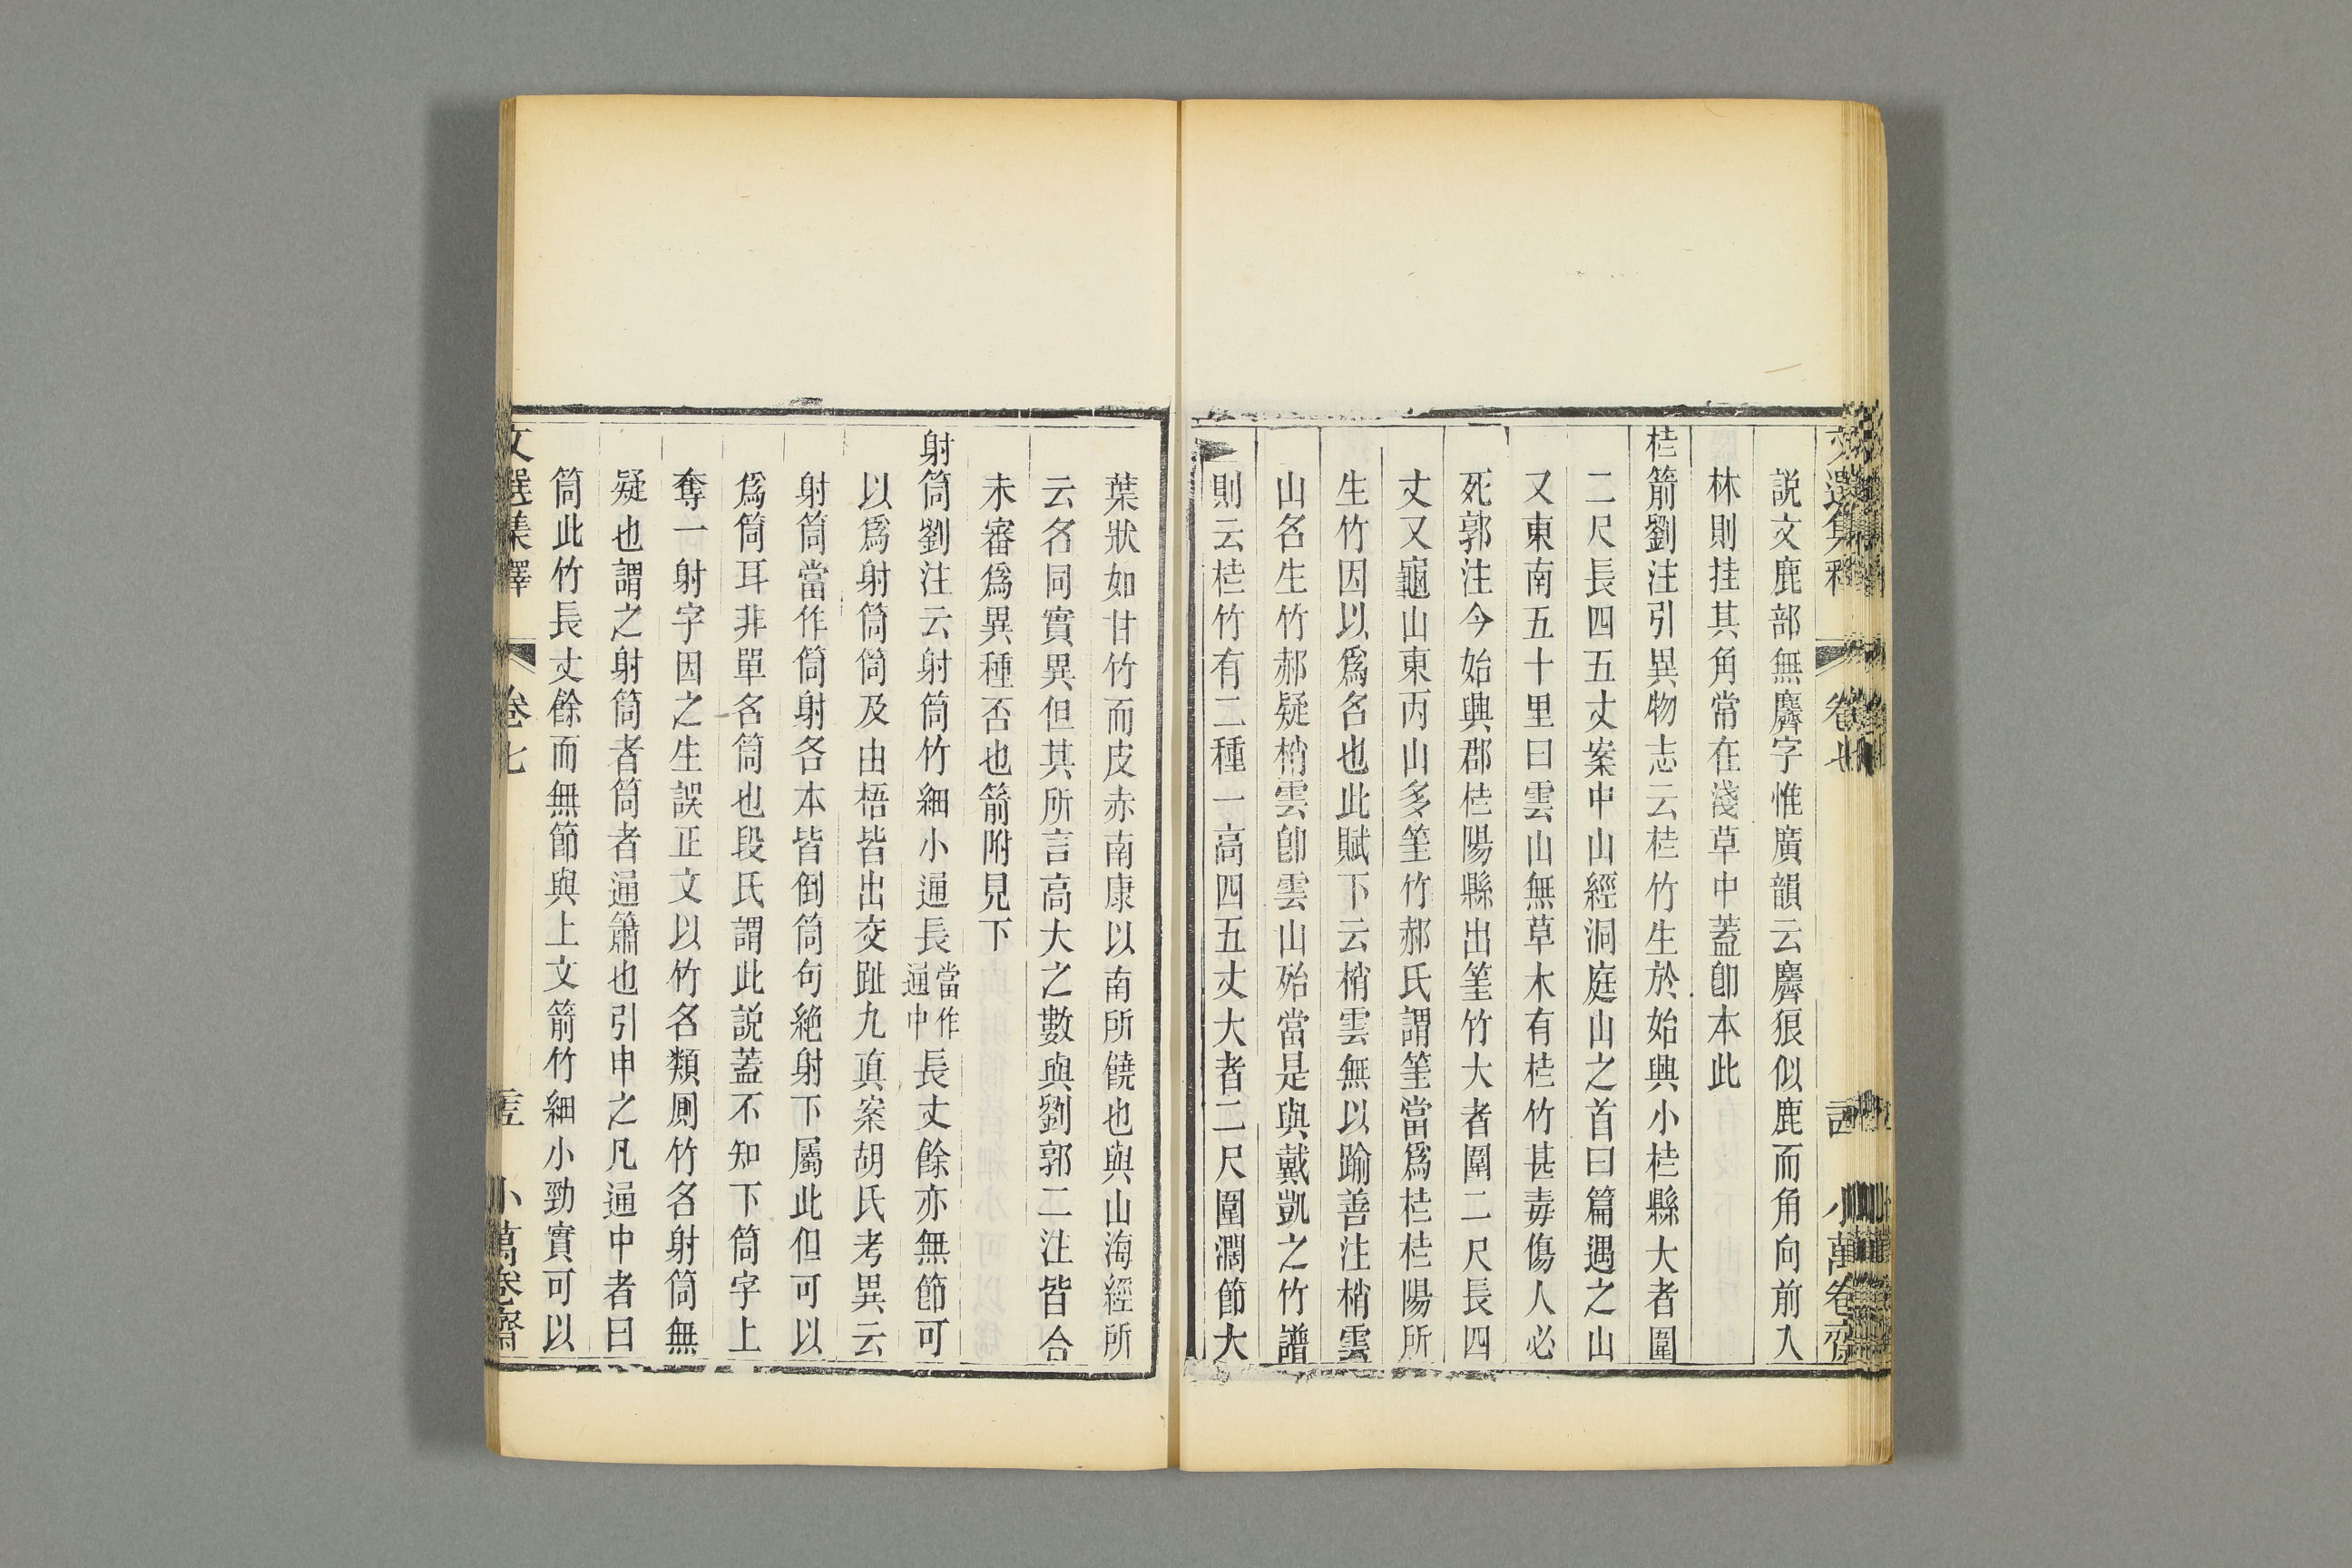 文選集釋 卷七 小萬卷齋
說文鹿部無麡字惟廣韻云麡狼似鹿而角向前入
林則挂其角常在淺草中蓋卽本此
桂箭劉注引異物志云桂竹生於始興小桂縣大者圍
二尺長四五丈案中山經洞庭山之首曰篇遇之山
又東南五十里曰雲山無草木有桂竹甚毒傷人必
死郭注今始興郡桂陽縣出筀竹大者圍二尺長四
丈又龜山東丙山多筀竹郝氏謂筀當爲桂桂陽所
生竹因以爲名也此賦下云梢雲無以踰善注梢雲
山名生竹郝疑梢雲卽雲山殆當是與戴凱之竹譜
則云桂竹有二種一高四五丈大者二尺圍濶節大
葉狀如甘竹而皮赤南康以南所饒也與山海經所
云名同實異但其所言高大之數與劉郭二注皆合
未審爲異種否也箭附見下
射筒劉注云射筒竹細小通長當作通中長丈餘亦無節可
以爲射筒筒及由梧皆出交趾九眞案胡氏考異云
射筒當作筒射各本皆倒筒句絶射下屬此但可以
爲筒耳非單名筒也段氏謂此説蓋不知下筒字上
奪一射字因之生誤正文以竹名類厠竹名射筒無
疑也謂之射筒者筒者通簫也引申之凡通中者曰
筒此竹長丈餘而無節與上文箭竹細小勁實可以
文選集釋 卷七 小萬卷齋